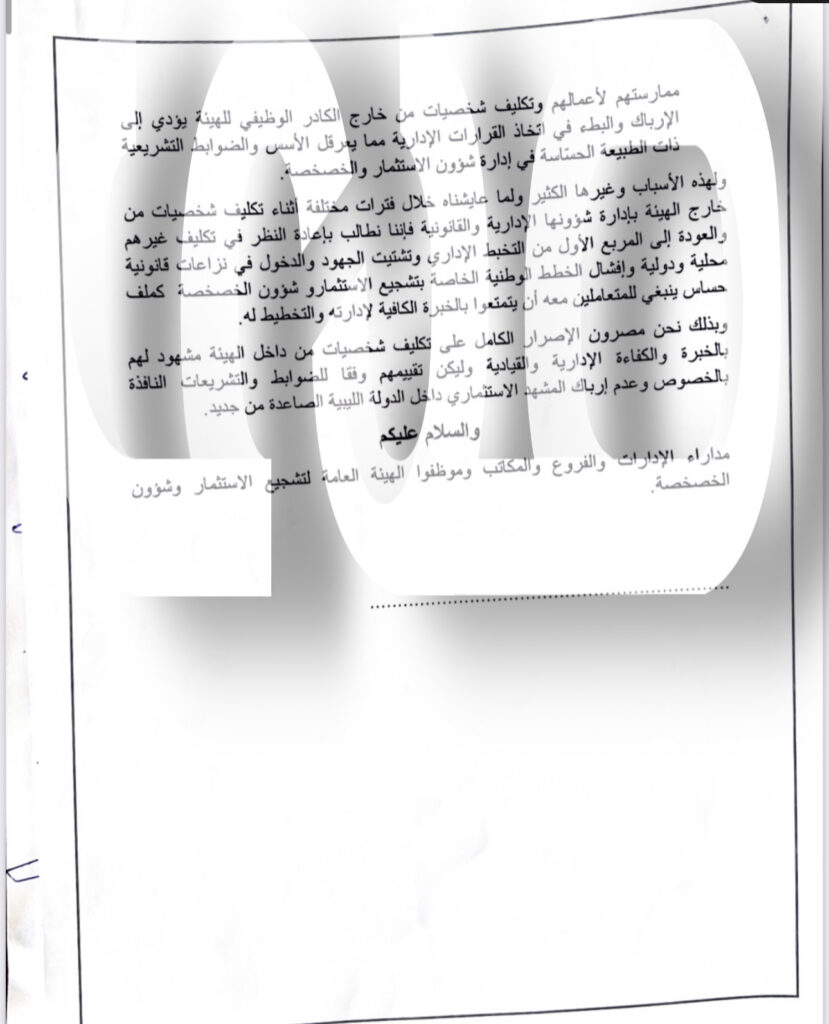 ممارستهم لأعمالهم وتكليف شخصيات من خارج الكادر الوظيفي للهيئة يؤدي إلى
الإرباك والبطء في اتخاذ القرارات الإدارية مما يعرقل الأسس والضوابط التشريعية
ذات الطبيعة الحسّاسة في إدارة شؤون الاستثمار والخصخصة.
ولهذه الأسباب وغيرها الكثير ولما عايشناه خلال فترات مختلفة أثناء تكليف شخصيات من
خارج الهيئة بإدارة شؤونها الإدارية والقانونية فإننا نطالب بإعادة النظر في تكليف غيرهم
والعودة إلى المربع الأول من التخبط الإداري وتشتيت الجهود والدخول في نزاعات قانونية
محلية ودولية وإفشال الخطط الوطنية الخاصة بتشجيع الاستثمارو شؤون الخصخصة كملف
حساس ينبغي للمتعاملين معه أن يتمتعوا بالخبرة الكافية لإدارته والتخطيط له.
وبذلك نحن مصرون الإصرار الكامل على تكليف شخصيات من داخل الهيئة مشهود لهم
بالخبرة والكفاءة الإدارية والقيادية وليكن تقييمهم وفقا للضوابط والتشريعات النافذة
بالخصوص وعدم إرباك المشهد الاستثماري داخل الدولة الليبية الصاعدة من جديد.
والسلام عليكم
مداراء الإدارات والفروع والمكاتب وموظفوا الهيئة العامة لتشجيع الاستثمار وشؤون
الخصخصة.